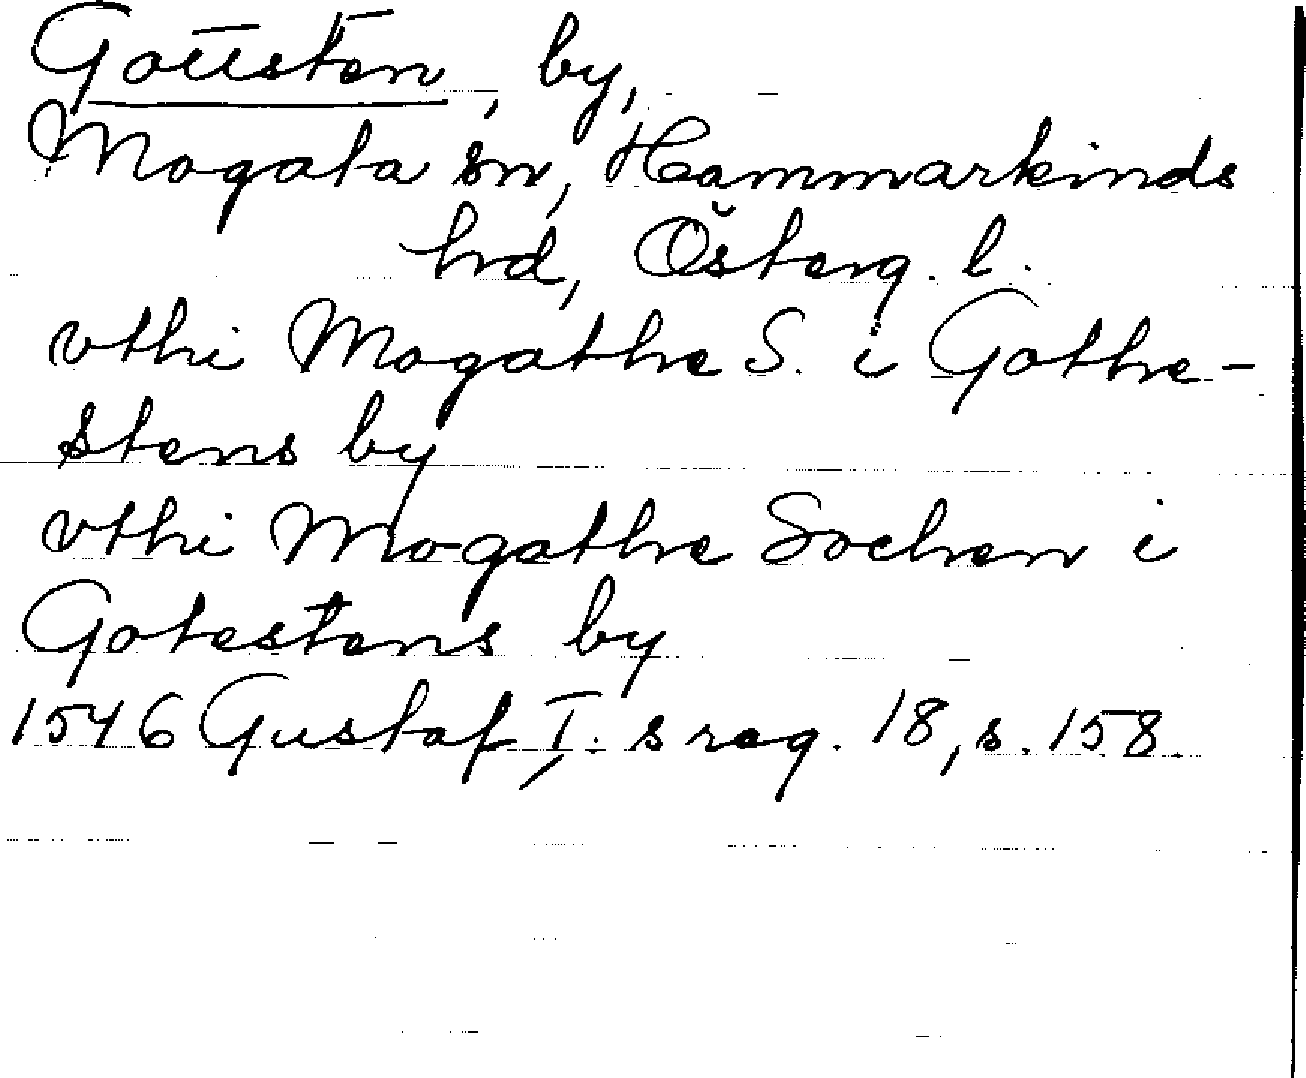 Gottsten, by,
Mogata sn, Hammarkinds
hrd, Österg. l.
vthi Mogathe S. i Gothe-
stens by
vthi Mogathe Sochen i
Gotestens by
1546 Gustaf I:s reg. 18, s. 158.